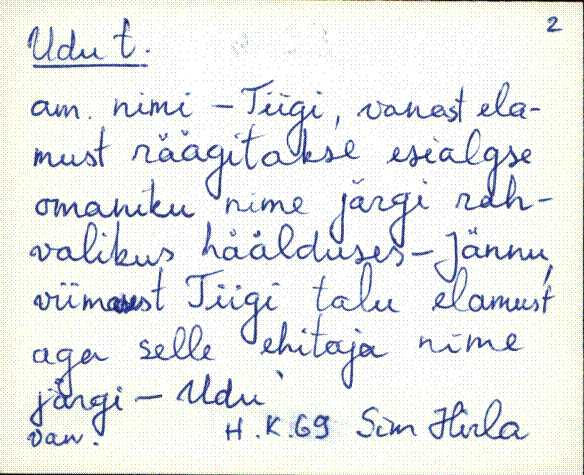 2
Udu t.
am. nimi – Tiigi, vanast ela-
must räägitakse esialgse
omaniku nime järgi rah-
valikus häälduses – Jännu,
viimasest Tiigi talu elamust
aga selle ehitaja nime
järgi – Udu
van. H.K.69 Siim Hirla